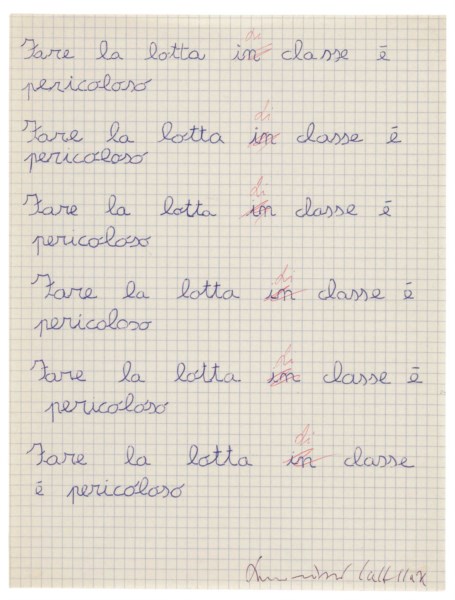 di
Fare la lotta in classe è
pericoloso
di
Fare la lotta in classe è
pericoloso
di
Fare la lotta in classe è
pericoloso
di
Fare la lotta in classe è
pericoloso
di
Fare la lotta in classe è
pericoloso
di
Fare la lotta in classe
è pericoloso